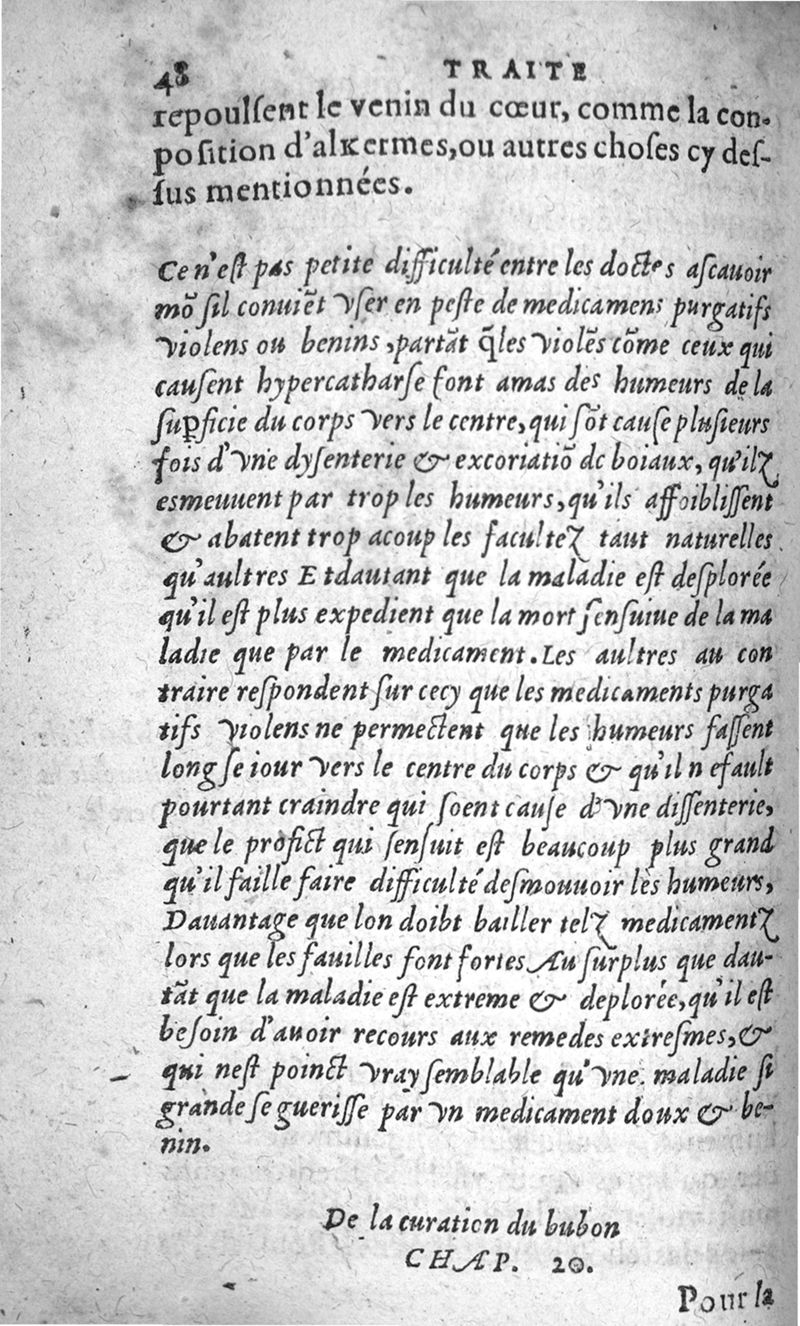 48 TRAITE
repoulſent le venin du cœur, comme la con-
poſition d'alkermes, ou autres choſes cy deſ-
ſus mentionnées.
Ce n'eſt pas petite difficulté entre les doctes aſcauoir
mõ ſil conuiẽt vſer en peſte de medicamens purgatifs
violens ou benins, partãt q̃ les violẽs cõme ceux qui
cauſent hypercatharſe font amas des humeurs de la
ſuꝑficie du corps vers le centre, qui ſõt cauſe pluſieurs
fois d'vne dyſenterie & excoriatiõ de boiaux, qu'ilz
esmeuuent par trop les humeurs, qu'ils affoibliſſent
& abatent trop acoup les facultez taut naturelles
qu'aultres E tdautant que la maladie eſt deſplorée
qu'il eſt plus expedient que la mort ſenſuiue de la ma
ladie que par le medicament. Les aultres au con
traire reſpondent ſur cecy que les medicaments purga
tifs violens ne permectent que les humeurs faſſent
long ſe iour vers le centre du corps & qu'il n efault
pourtant craindre qui ſoent cauſe d'vne diſſenterie,
que le profict qui ſenſuit eſt beaucoup plus grand
qu'il faille faire difficulté deſmouuoir les humeurs,
Dauantage que lon doibt bailler telz medicamentz
lors que les fauilles ſont fortes Au ſurplus que dau-
tãt que la maladie eſt extreme & deplorée, qu'il eſt
beſoin d'auoir recours aux remedes extreſmes, &
qui neſt poinct vray ſemblable qu'vne maladie ſi
grande ſe gueriſſe par vn medicament doux & be-
nin.
De la curation du bubon
CHAP. 20.
Pour la